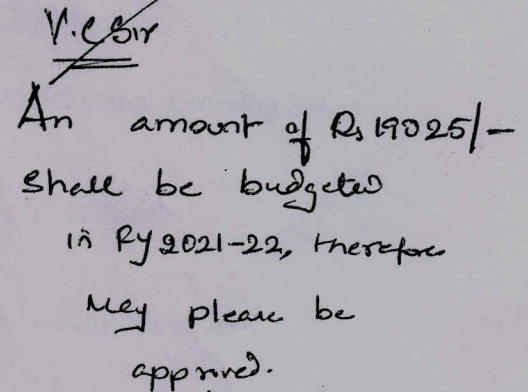 V.C Sir
An amount of Rs 19025/-
Shall be budgeted
in FY 2021-22, therefore
May please be
approved.